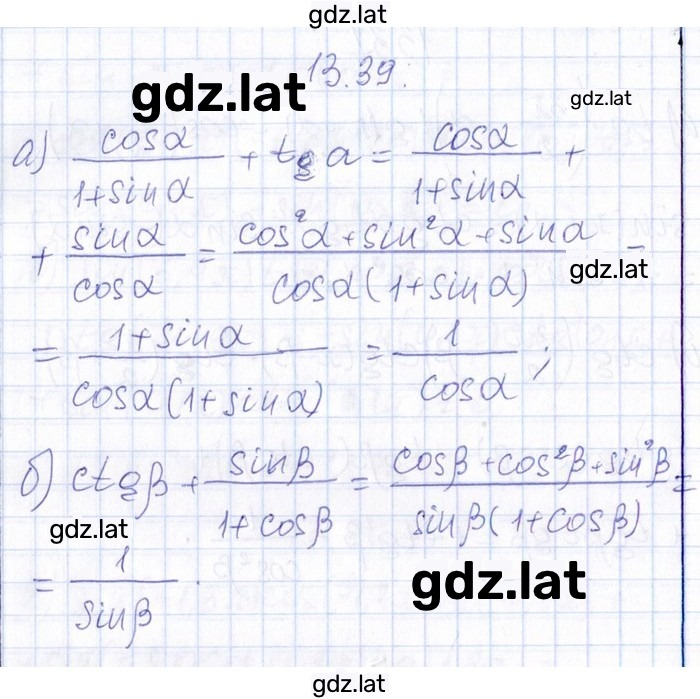 gdz.lat
13.39.
gdz.lat
gdz.lat
а) cosα/(1+sinα) + tgα = cosα/(1+sinα) +
+ sinα/cosα = (cos²α+sin²α+sinα)/(cosα(1+sinα)) =
gdz.lat
= (1+sinα)/(cosα(1+sinα)) = 1/cosα ;
б) ctgβ + sinβ/(1+cosβ) = (cosβ+cos²β+sin²β)/(sinβ(1+cosβ)) =
gdz.lat
= 1/sinβ .
gdz.lat
gdz.lat